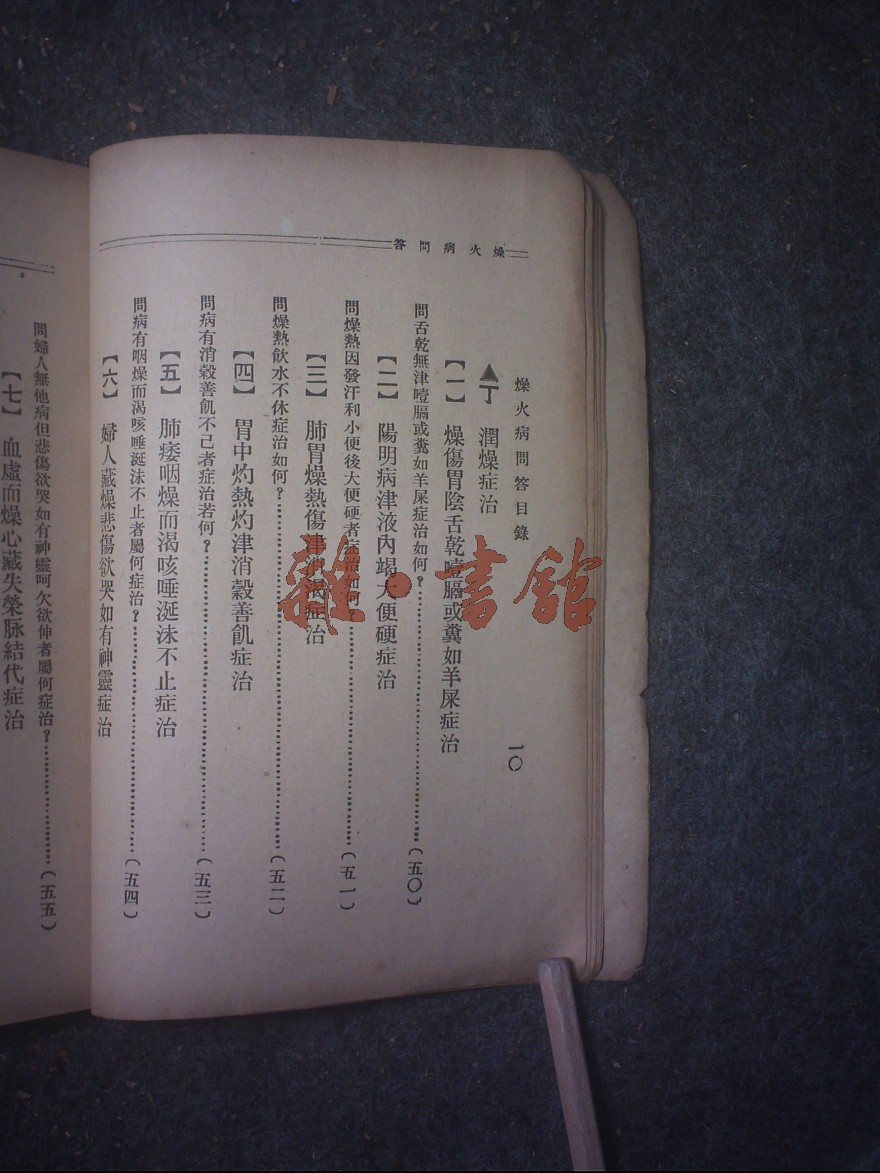 燥火病問答
燥火病問答目錄 一〇
▲丁 潤燥症治
【一】 燥傷胃陰舌乾噎膈或糞如羊屎症治
問舌乾無津噎膈或糞如羊屎症治如何？……(五〇)
【二】 陽明病津液內竭大便硬症治
問燥熱因發汗利小便後大便硬者症治如何？……(五一)
【三】 肺胃燥熱傷津消渴症治
問燥熱飲水不休症治如何？……(五二)
【四】 胃中灼熱灼津消穀善飢症治
問病有消穀善飢不已者症治若何？……(五三)
【五】 肺痿咽燥而渴咳唾涎沫不止症治
問病有咽燥而渴咳唾涎沫不止者屬何症治？……(五四)
【六】 婦人藏燥悲傷欲哭如有神靈症治
問婦人無他病但悲傷欲哭如有神靈呵欠欲伸者屬何症治？……(五五)
【七】 血虛而燥心藏失榮脉結代症治
雜·書館